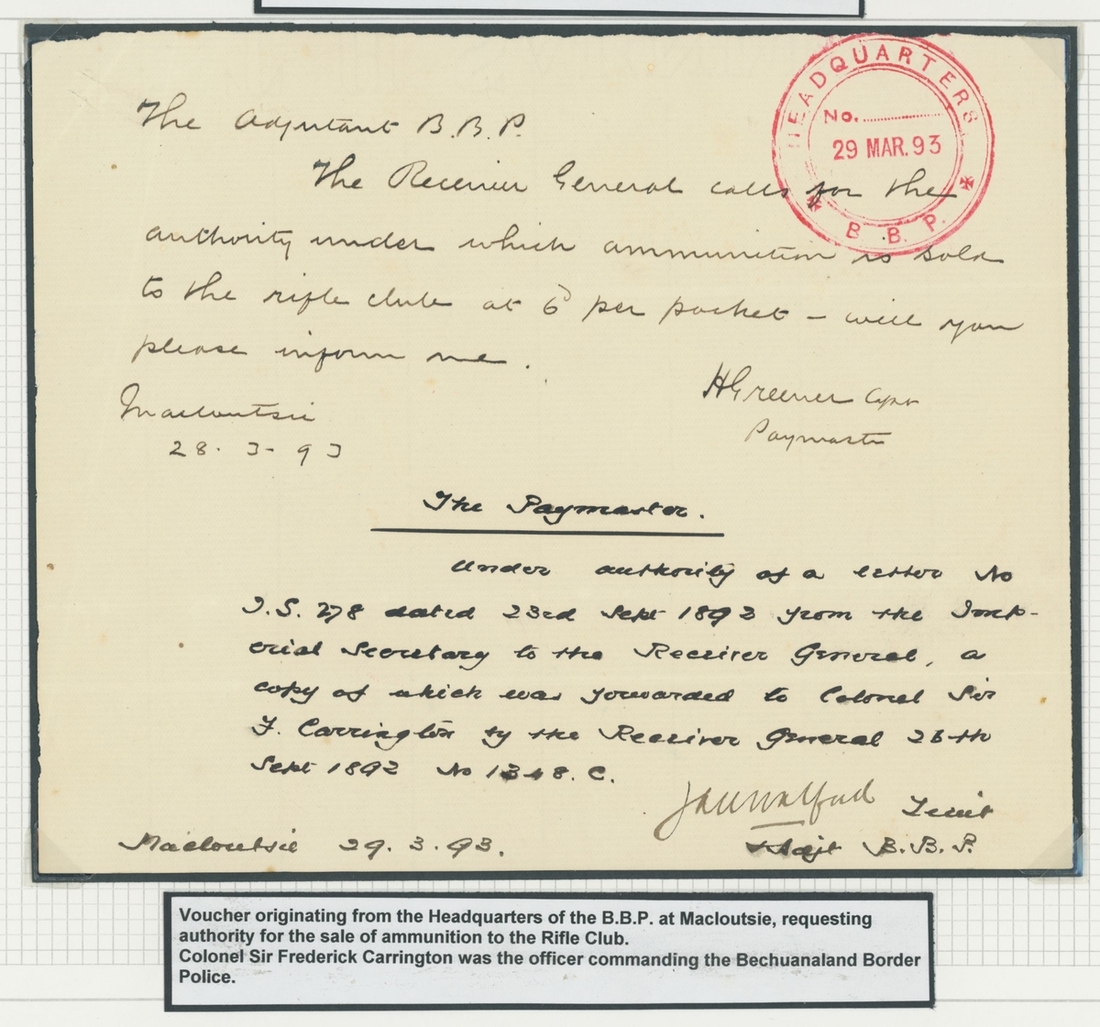 HEADQUARTERS
No.
29 MAR. 93
B. B. P.
The Adjutant B.B.P.
The Receiver General calls for the
authority under which ammunition is sold
to the rifle club at 6d per packet – will you
please inform me.
HGreener Capt
Paymaster
Macloutsie
28. 3- 93
The Paymaster.
Under authority of a letter No
I.S. 278 dated 23rd Sept 1892 from the Imp-
erial Secretary to the Receiver General, a
copy of which was forwarded to Colonel Sir
F. Carrington by the Receiver General 26th
Sept 1892 No 1348. C.
Lieut
Macloutsie 29. 3. 93. Adjt B.B.P.
Voucher originating from the Headquarters of the B.B.P. at Macloutsie, requesting
authority for the sale of ammunition to the Rifle Club.
Colonel Sir Frederick Carrington was the officer commanding the Bechuanaland Border
Police.